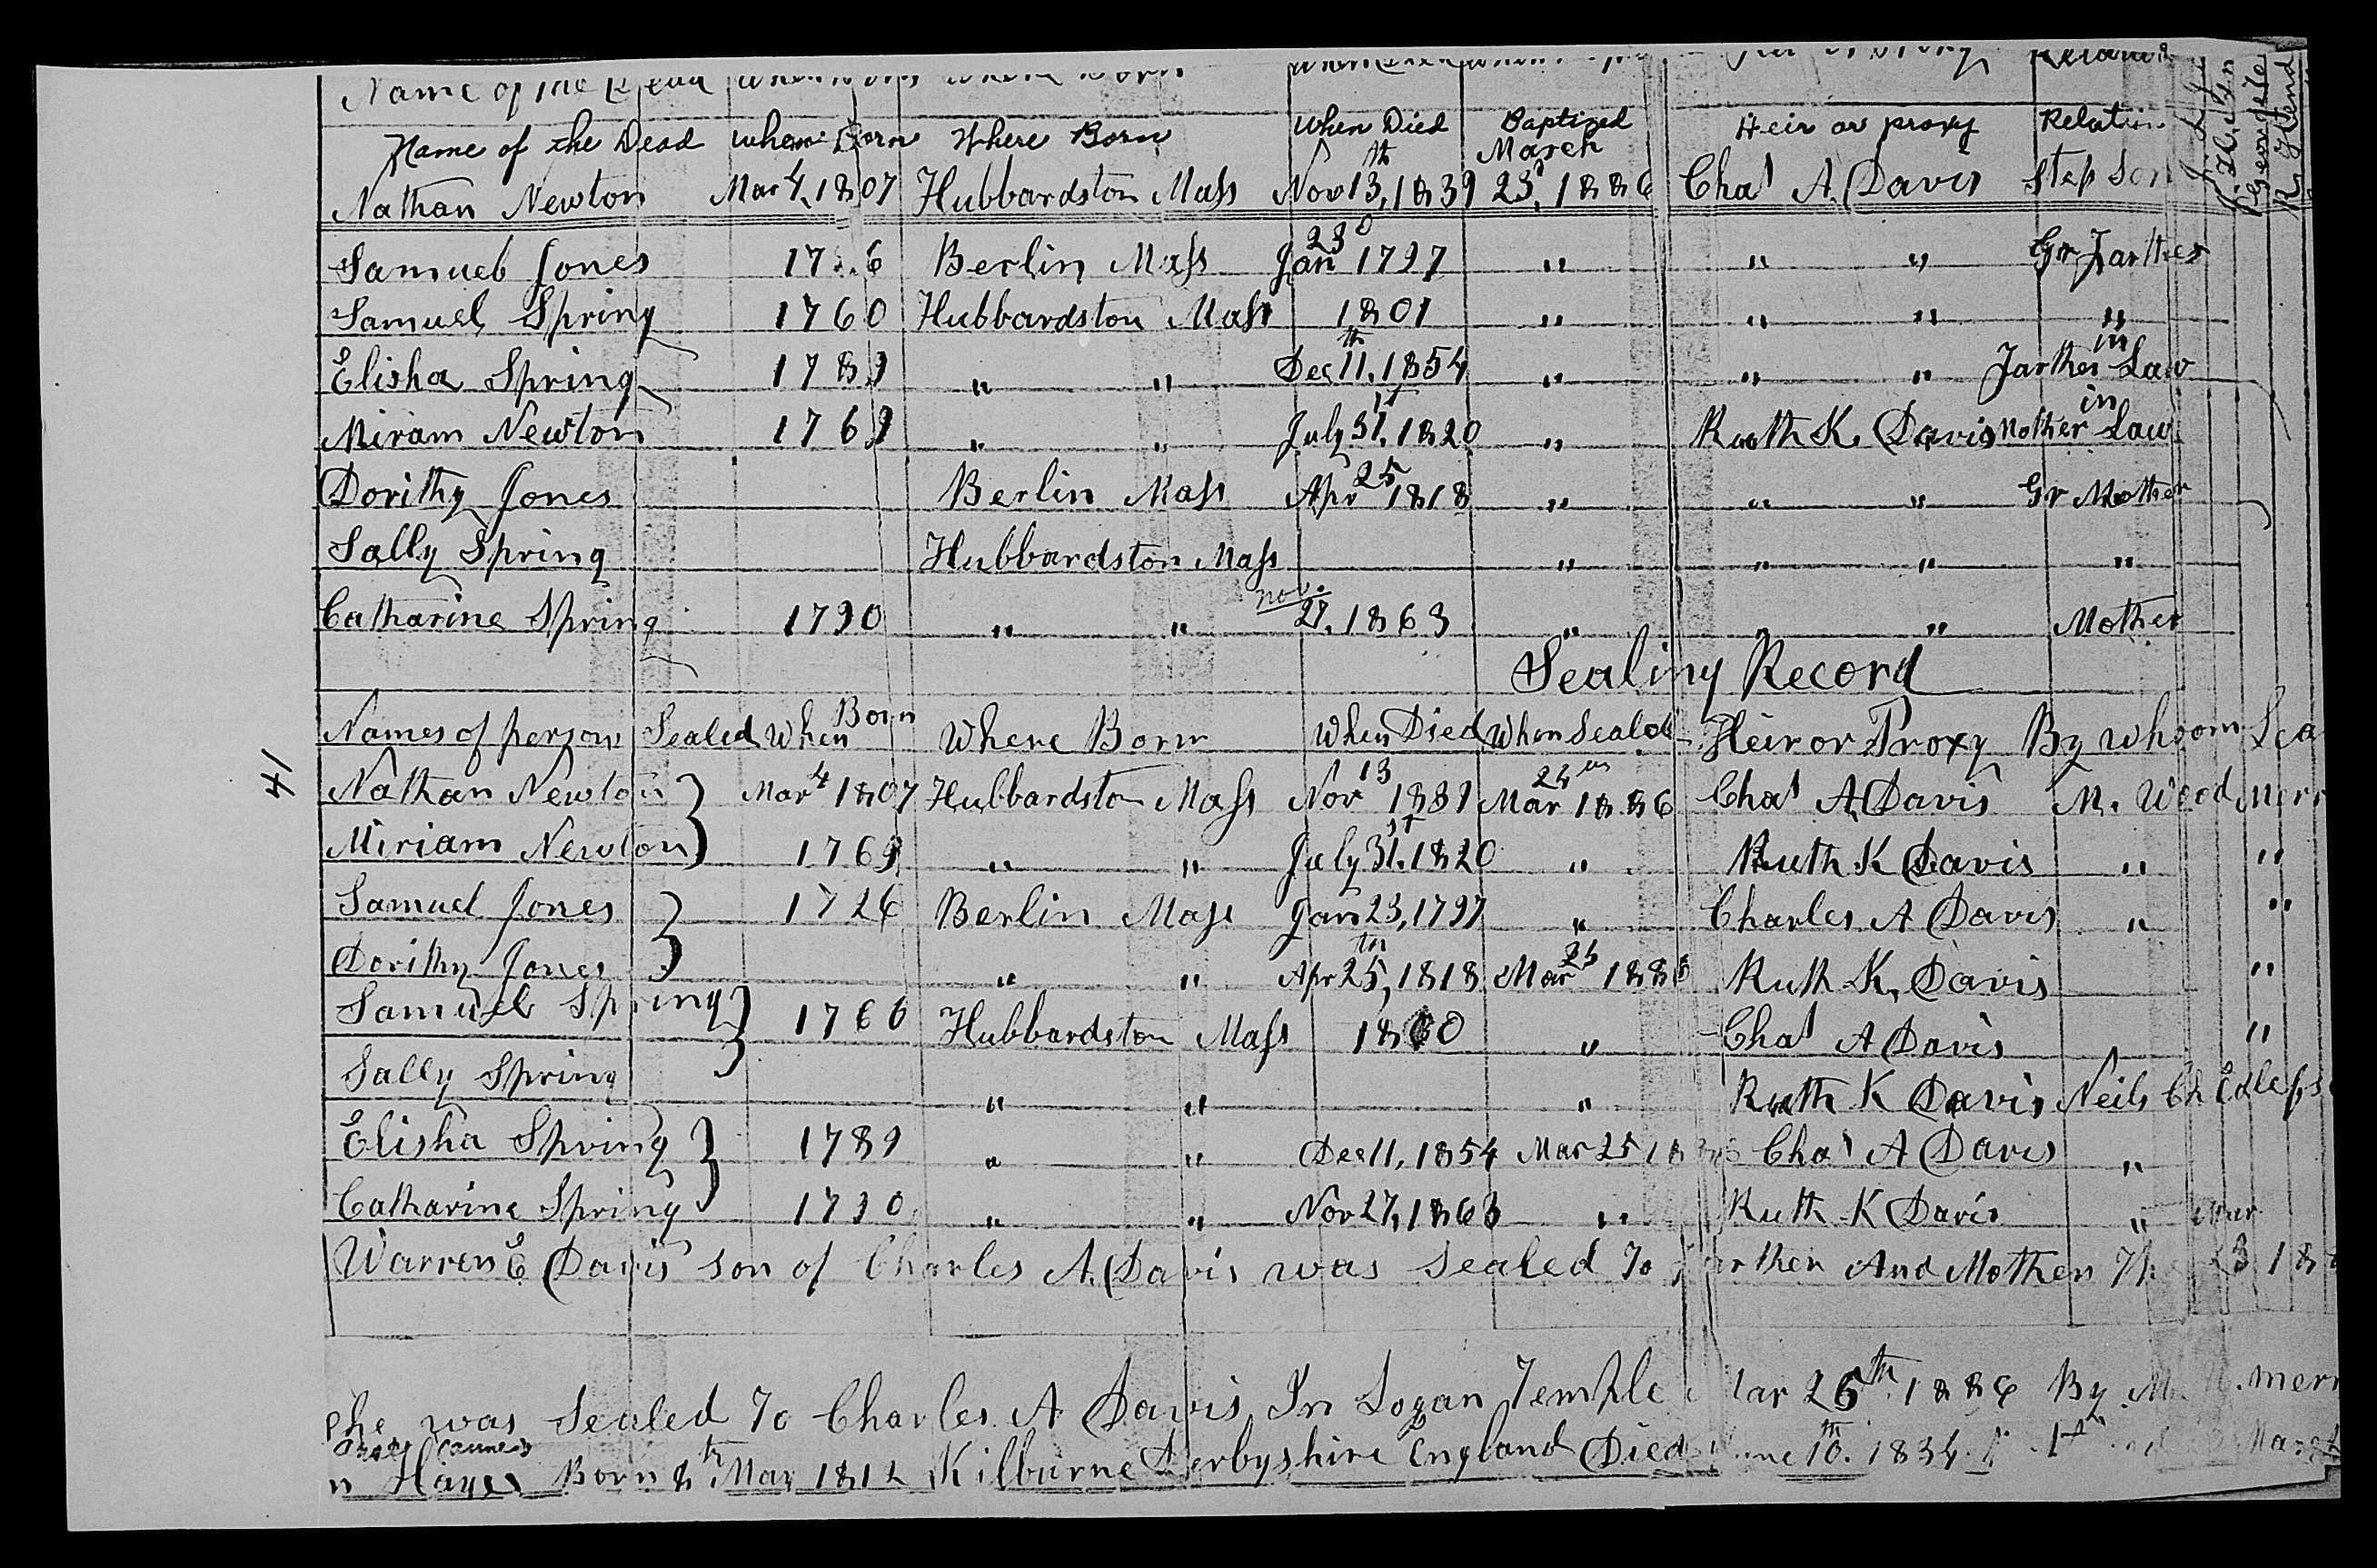 Name of the Dead when Born where Born
Name of the Dead when Born Where Born When Died Baptized March Heir or proxy Relation
Nathan Newton Mar 4, 1807 Hubbardston Mass Nov 13th, 1839 23d, 1886 Chas A. Davis Step Son
Samuel Jones Berlin Mass Jan 23d 1797 " " " Gr Farther
Samuel Spring 1760 Hubbardston Mass 1801 " " " "
Elisha Spring 1789 " " Dec 11th, 1854 " " " Farther in Law
Miram Newton 1769 " " July 31st, 1820 " Ruth K. Davis Mother in Law
Dorithy Jones Berlin Mass Apr 25 1818 " " " Gr Mother
Sally Spring Hubbardston Mass " " " "
Catharine Spring 1790 " " nov. 27, 1863 " " " Mother
Sealing Record
Names of persons Sealed When Born Where Born When Died When Sealed Heir or Proxy By whoom Sea
Nathan Newton Mar 4 1807 Hubbardston Mass Nov 13 Mar 1886 Chas A. Davis M. Wood Merr
Miriam Newton 1769 " " July 31st, 1820 " Ruth K Davis " "
Samuel Jones 1726 Berlin Mass Jan 23, 1797 " Charles A Davis " "
Dorithy Jones " " Apr 25th, 1818 Mar 25 Ruth K. Davis "
Samuel Spring Hubbardston Mass " Chas A Davis "
Sally Spring " " " Ruth K Davis
Elisha Spring 1789 " " Dec 11, 1854 Mar 25 Chas A Davis "
Catharine Spring 1790 " " Nov 27, 1863 " Ruth K Davis "
Warren E Davis son of Charles A. Davis was Sealed To Farther And Mother
41
she was Sealed To Charles A Davis In Logan Temple 1886 By M.
Hayes Born 8th, May 1812 Kilburne Derbyshire England Died June 10th. 1834